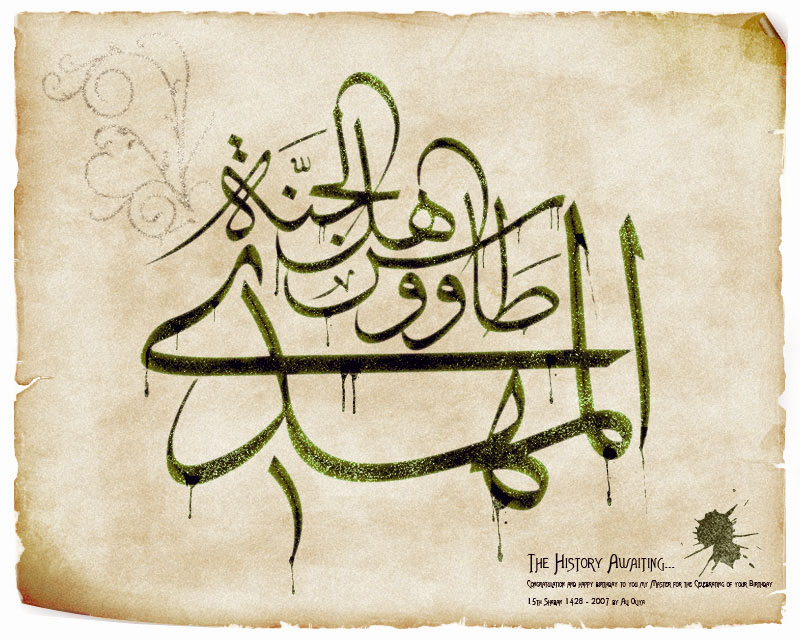 المهدي
طاووس
أهل
الجنّة
The History Awaiting...
Congratulation and happy birthday to you my Master for the Celebrating of your Birthday
15th Shaban 1428 - 2007 by Ali Oliya